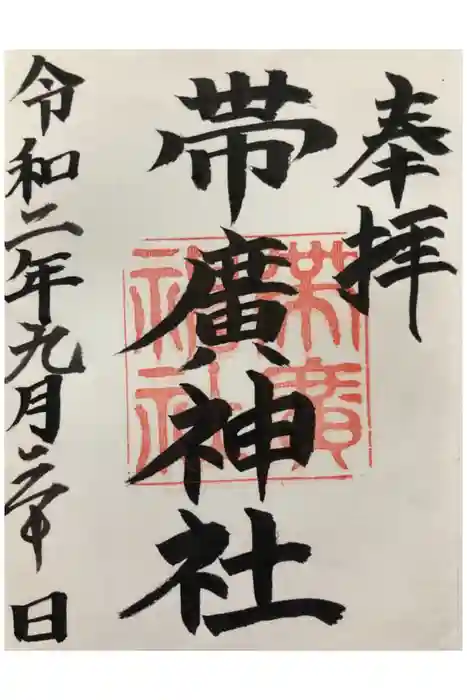 奉拝
帯廣神社
帯廣
神社
令和二年九月 日